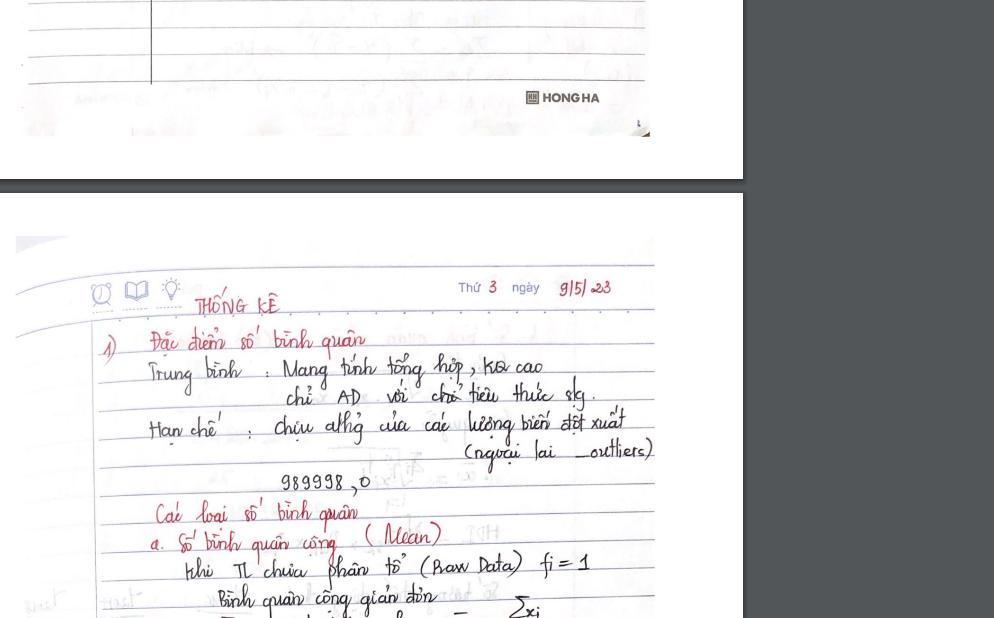 HONG HA
Thứ 3 ngày 9/5/23
THỐNG KÊ
1) Đặc điểm số bình quân
Trung bình : Mang tính tổng hợp, KQ cao
chỉ AD với chỉ tiêu thức slg.
Hạn chế : chịu ahg của các lượng biến đột xuất
(ngoại lai _outliers)
989998,0
Các loại số bình quân
a. Số bình quân cộng (Mean)
Khi TL chưa phân tổ (Raw Data) fi = 1
Bình quân cộng giản đơn
= Σxi